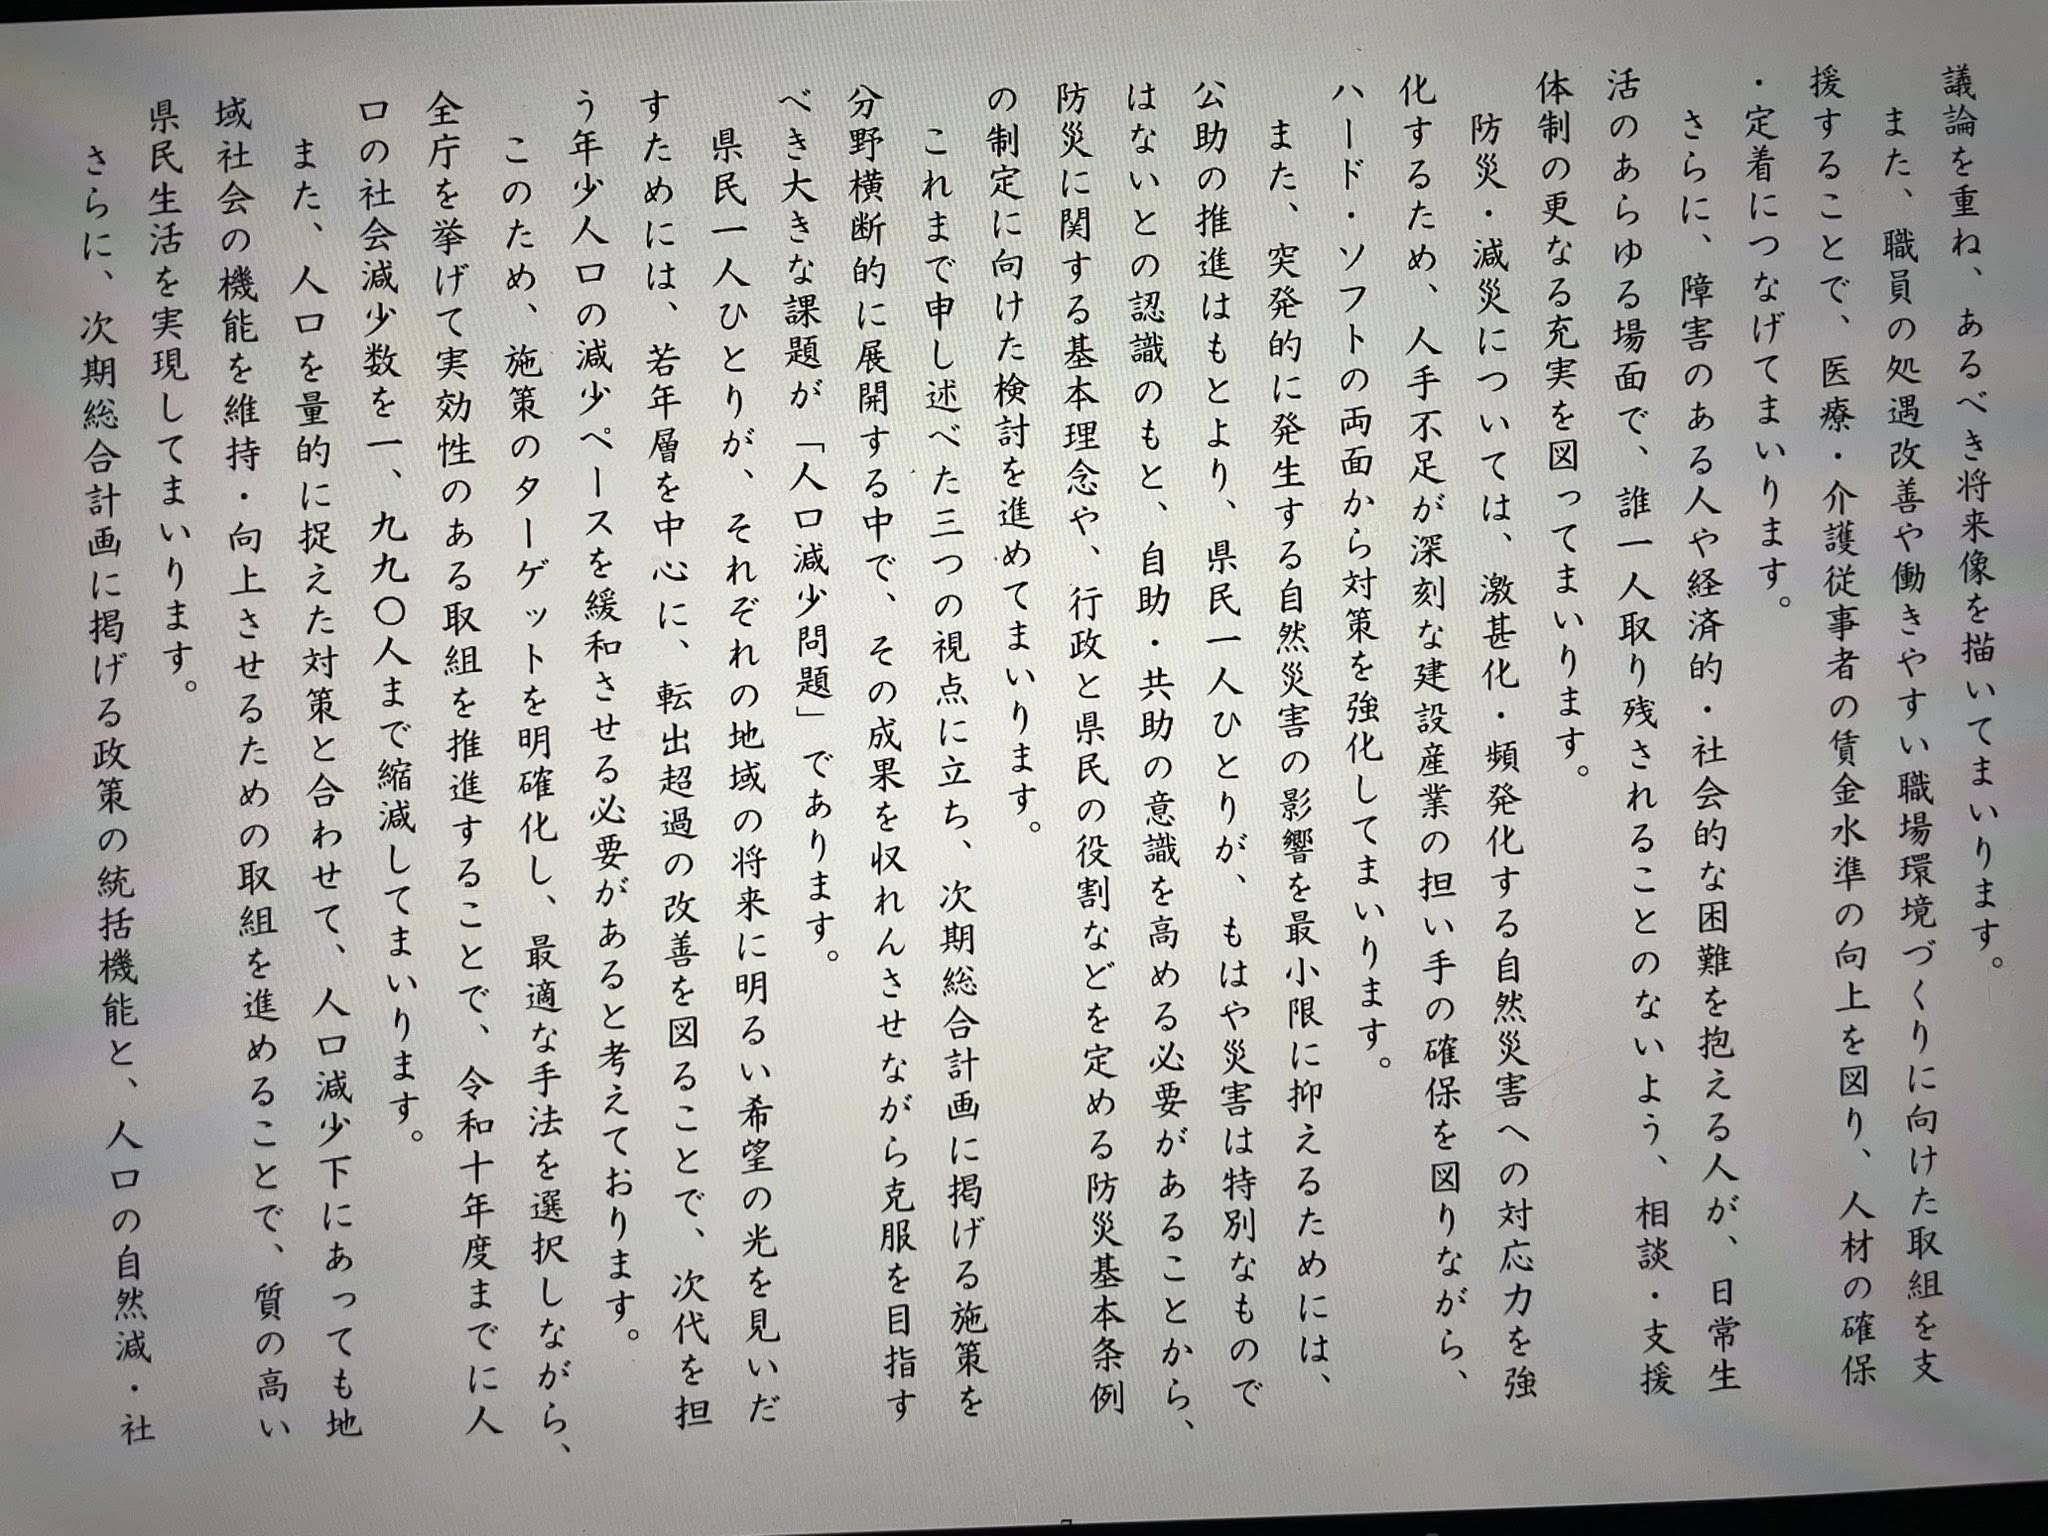 議論を重ね、あるべき将来像を描いてまいります。
また、職員の処遇改善や働きやすい職場環境づくりに向けた取組を支
援することで、医療・介護従事者の賃金水準の向上を図り、人材の確保
・定着につなげてまいります。
さらに、障害のある人や経済的・社会的な困難を抱える人が、日常生
活のあらゆる場面で、誰一人取り残されることのないよう、相談・支援
体制の更なる充実を図ってまいります。
防災・減災については、激甚化・頻発化する自然災害への対応力を強
化するため、人手不足が深刻な建設産業の担い手の確保を図りながら、
ハード・ソフトの両面から対策を強化してまいります。
また、突発的に発生する自然災害の影響を最小限に抑えるためには、
公助の推進はもとより、県民一人ひとりが、もはや災害は特別なもので
はないとの認識のもと、自助・共助の意識を高める必要があることから、
防災に関する基本理念や、行政と県民の役割などを定める防災基本条例
の制定に向けた検討を進めてまいります。
これまで申し述べた三つの視点に立ち、次期総合計画に掲げる施策を
分野横断的に展開する中で、その成果を収れんさせながら克服を目指す
べき大きな課題が「人口減少問題」であります。
県民一人ひとりが、それぞれの地域の将来に明るい希望の光を見いだ
すためには、若年層を中心に、転出超過の改善を図ることで、次代を担
う年少人口の減少ペースを緩和させる必要があると考えております。
このため、施策のターゲットを明確化し、最適な手法を選択しながら、
全庁を挙げて実効性のある取組を推進することで、令和十年度までに人
口の社会減少数を一、九九〇人まで縮減してまいります。
また、人口を量的に捉えた対策と合わせて、人口減少下にあっても地
域社会の機能を維持・向上させるための取組を進めることで、質の高い
県民生活を実現してまいります。
さらに、次期総合計画に掲げる政策の統括機能と、人口の自然減・社